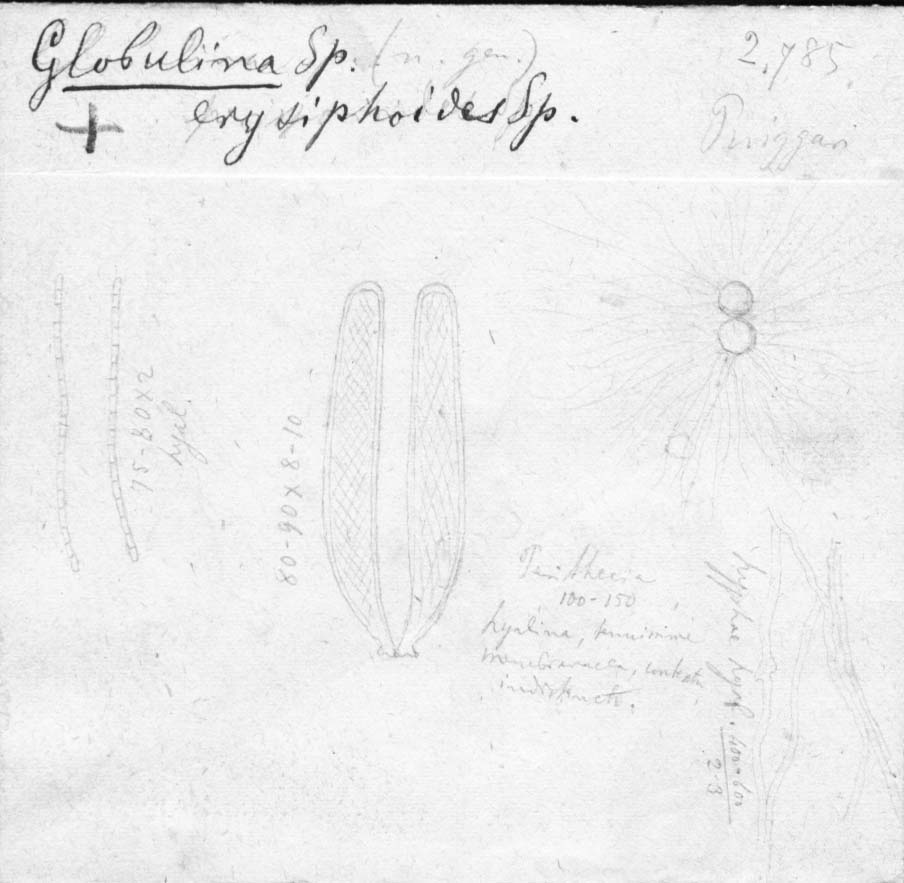 Globulina Sp. (n. gen.)
+ erysiphoides Sp.
2,785
Puiggari
75-80x2
hyal.
80-90x8-10
Perithecia
100-150
hyalina, tenuissime
membranacea, contextu
indistincto.
hyphae hyal. 400-600
2-3